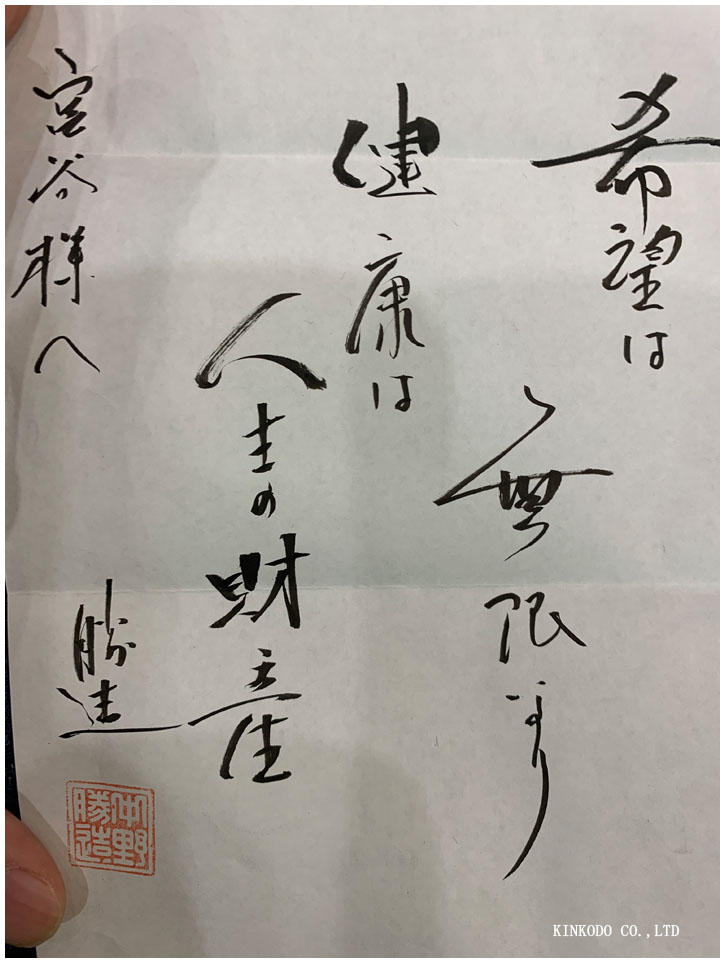 希望は
無限なり
健康は
人生の財産
宮谷様へ
勝造
仲野
勝造
KINKODO CO.,LTD